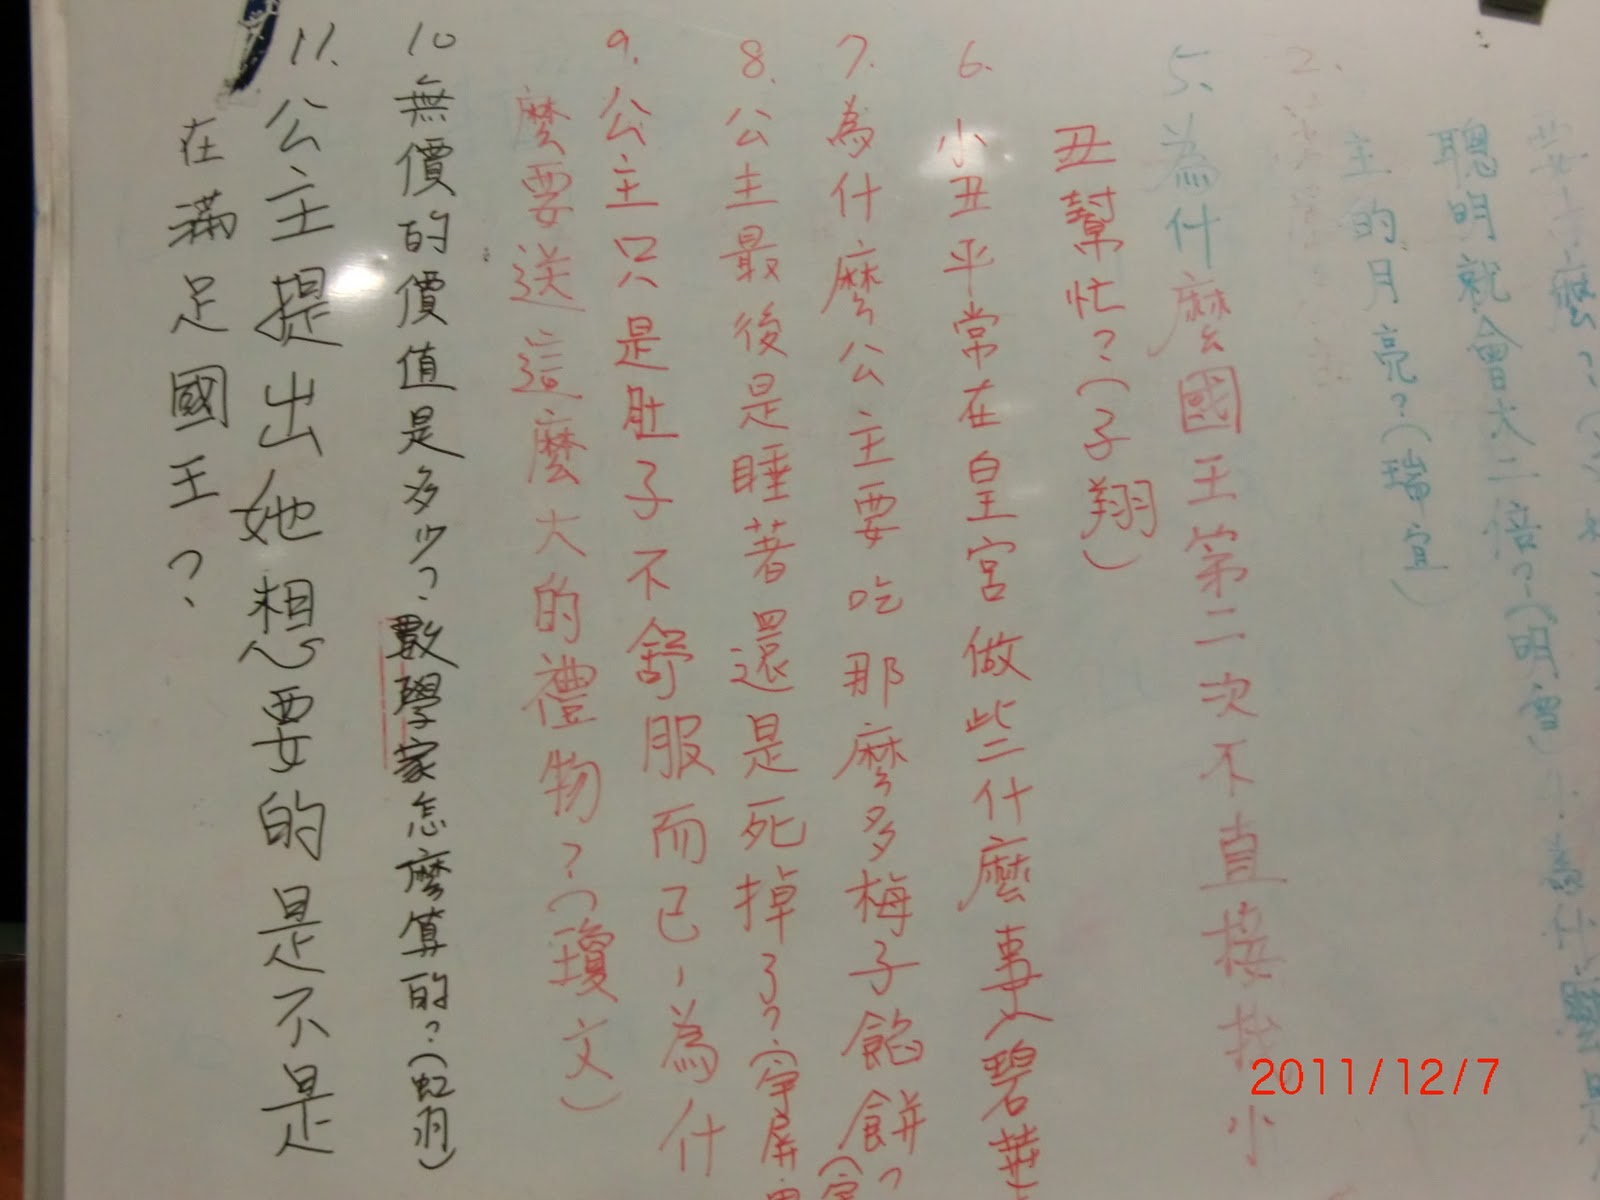 麼？
聰明就會大二倍？（明雪）
主的月亮？（瑞宜）
2.
5、為什麼國王第二次不直接找小
丑幫忙？（子翔）
6.小丑平常在皇宮做些什麼事？（碧華）
7.為什麼公主要吃那麼多梅子餡餅？
8.公主最後是睡著還是死掉了？（寧屏
9.公主只是肚子不舒服而已，為什
麼要送這麼大的禮物？（瓊文）
10無價的價值是多少？數學家怎麼算的？（虹羽）
11.公主提出她想要的是不是
在滿足國王？
2011/12/7